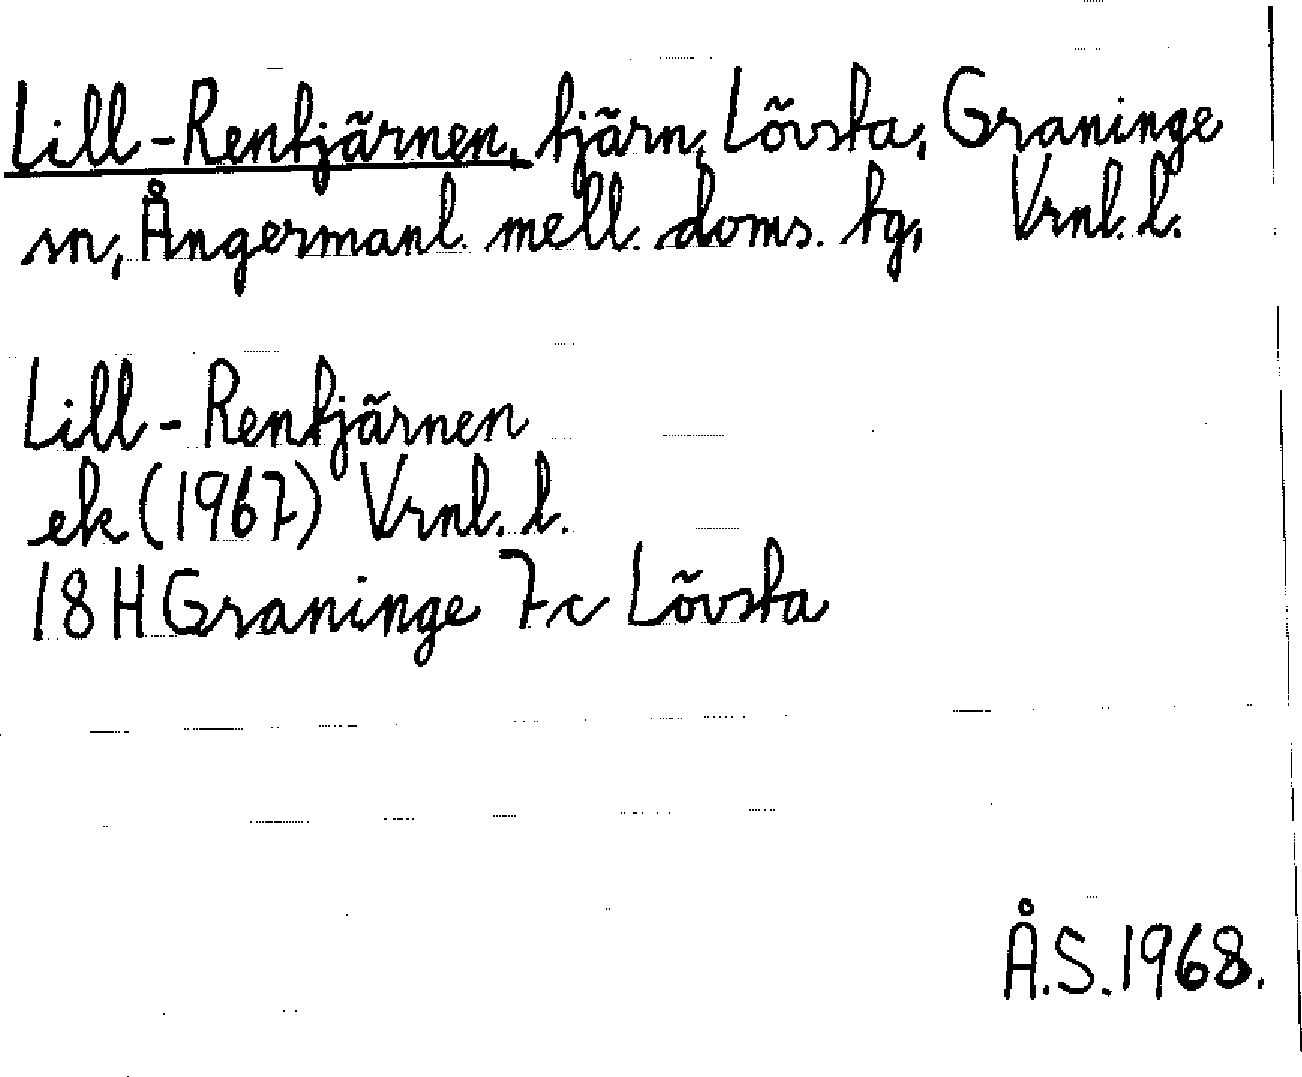 Lill-Rentjärnen, tjärn, Lövsta, Graninge
sn, Ångermanl. mell. doms. tg, Vrnl. l.
Lill-Rentjärnen
ek (1967) Vrnl. l.
18H Graninge 7c Lövsta
Å.S. 1968.